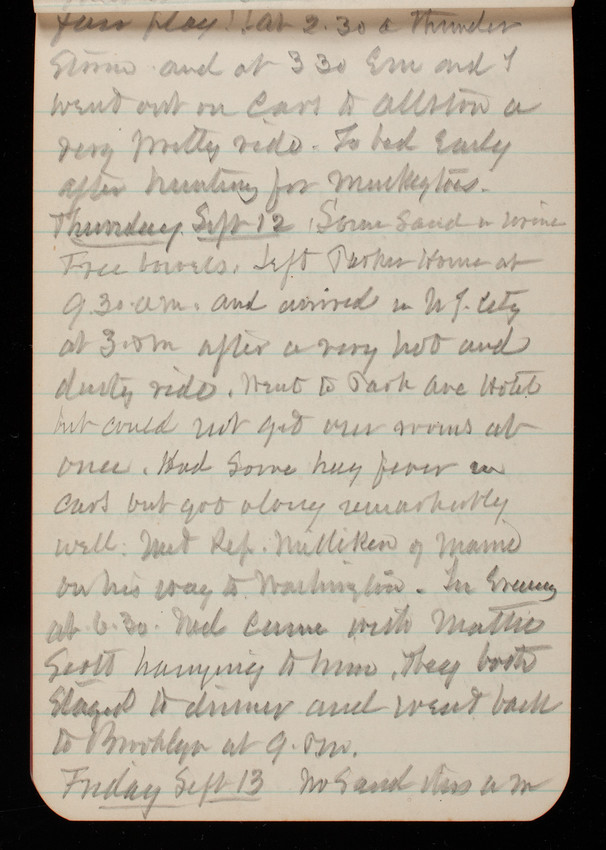 fair play! At 2.30 a thunder
storm and at 3 30 Em and I
went out on cars to Allston a
very pretty ride. To bed Early
after hunting for Muskeytoes.
Thursday Sept 12 Some Sand in Urine
Free bowels. Left Parker House at
9.30 a.m. and arrived in N.Y. City
at 3. P.m after a very hot and
dusty ride. Went to Park Ave Hotel
but could not get our rooms at
once. Had some hay fever in
cars but got along remarkably
well. Met Rep. Milliken of Maine
on his way to Washington. In Evening
at 6.30. Ned came with Mattie
Scott hanging to him. They both
Stayed to dinner and went back
to Brooklyn at 9. Pm.
Friday Sept 13 No Sand this a m